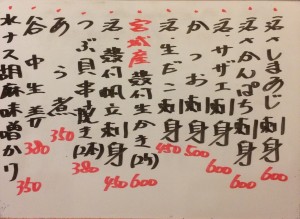 活〆しまあじ刺身 600
活〆かんぱち刺身 600
活サザエ刺身 600
かつお刺身 500
活生だこ刺身 450
宮城産殻付生かき(2ヶ) 600
活殻付帆立刺身 450
つぶ貝串焼き(2本) 380
あら煮 350
谷中生姜 380
水ナス胡麻味噌かり 350